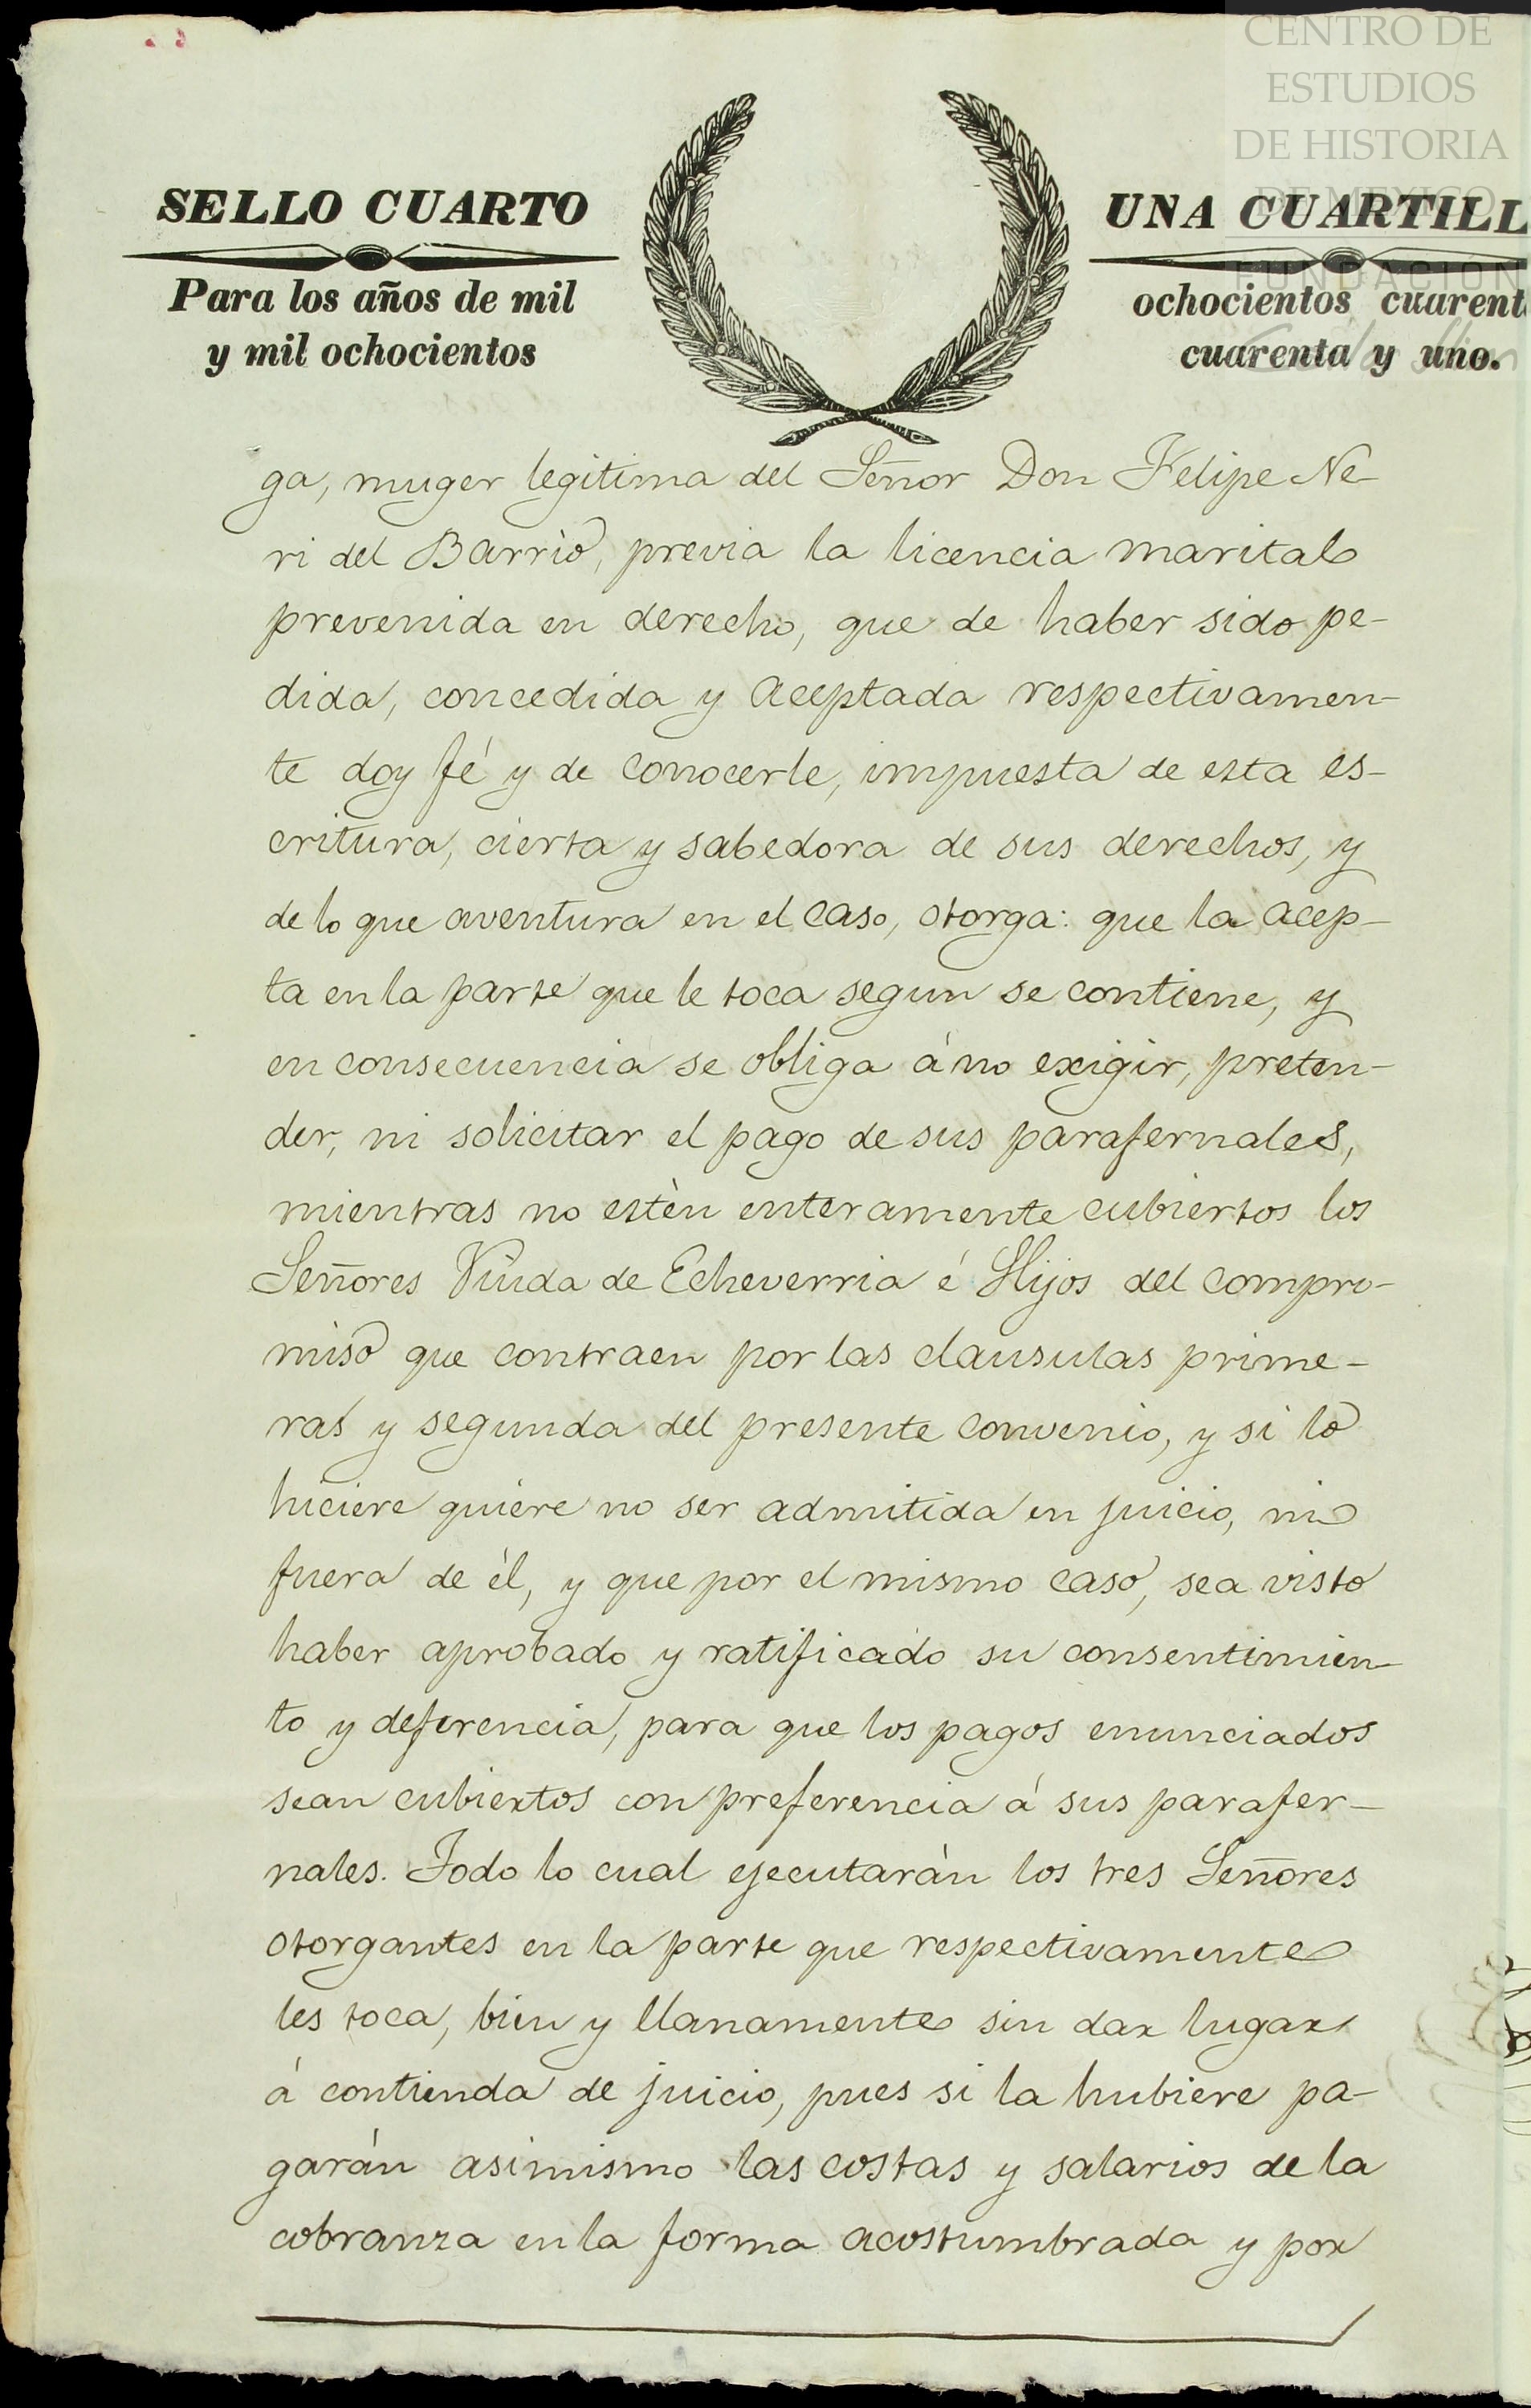 CENTRO DE
ESTUDIOS
DE HISTORIA
DE MEXICO
FUNDACION
SELLO CUARTO
Para los años de mil
y mil ochocientos
UNA CUARTILL
ochocientos cuarent
cuarenta y uno.
ga, muger legitima del Señor Don Felipe Ne-
ri del Barrio, previa la licencia marital
prevenida en derecho, que de haber sido pe-
dida, concedida y aceptada respectivamen-
te doy fé y de conocerle, impuesta de esta es-
critura, cierta y sabedora de sus derechos, y
de lo que aventura en el caso, otorga: que la acep-
ta en la parte que le toca segun se contiene, y
en consecuencia se obliga á no exigir, preten-
der, ni solicitar el pago de sus parafernales,
mientras no estèn enteramente cubiertos los
Señores Viuda de Echeverria é Hijos del compro-
miso que contraen por las clausulas prime-
ras y segunda del presente convenio, y si lo
hiciere quiere no ser admitida en juicio, ni
fuera de él, y que por el mismo caso, sea visto
haber aprobado y ratificado su consentimien-
to y deferencia, para que los pagos enunciados
sean cubiertos con preferencia á sus parafer-
nales. Todo lo cual ejecutarán los tres Señores
otorgantes en la parte que respectivamente
les toca, bien y llanamente sin dar lugar
á contienda de juicio, pues si la hubiere pa-
garán asimismo las costas y salarios de la
cobranza en la forma acostumbrada y por